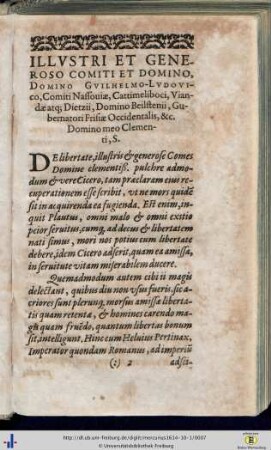 ILLVSTRI ET GENE-
ROSO COMITI ET DOMINO,
DOMINO GVILHELMO-LVDOVI-
co, Comiti Nassouiæ, Cattimeliboci, Vian-
dæ atq; Dietzii, Domino Beilstenii, Gu-
bernatori Frisiæ Occidentalis, &c.
Domino meo Clemen-
ti, S.
DE libertate, illustris & generose Comes
Domine clementiss. pulchre admo-
dum & vere Cicero, tam præclaram eius re-
cuperationem esse scribit, vt ne mors quidē
sit in acquirenda ea fugienda. Est enim, in-
quit Plautus, omni malo & omni exitio
peior seruitus, cumq, ad decus & libertatem
nati simus, mori nos potius cum libertate
debere, idem Cicero adserit, quam ea amissa,
in seruitute vitam miserabilem ducere.
Quemadmodum autem cibi ii magis
delectant, quibus diu non vsus fueris. sic a-
criores sunt plerunq, morsus amissa liberta-
tis quam retentæ, & homines carendo ma-
gis quam fruēdo, quantum libertas bonum
sit, intelligunt. Hinc cum Heluius Pertinax,
Imperator quondam Romanus, ad imperiū
(:) 2 adsci-
http://dl.ub.uni-freiburg.de/diglit/mercurius1614-10-1/0007
© Universitätsbibliothek Freiburg